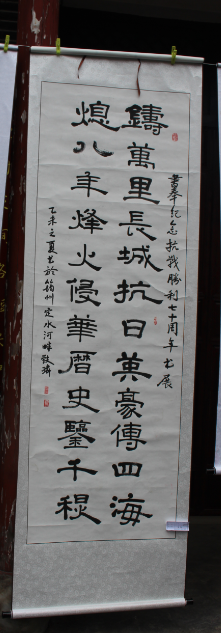 書奉纪念抗戰勝利七十周年书展
鑄萬里長城抗日英豪傳四海
熄八年烽火侵華曆史鑒千秋
乙未之夏书於筠州 水河畔